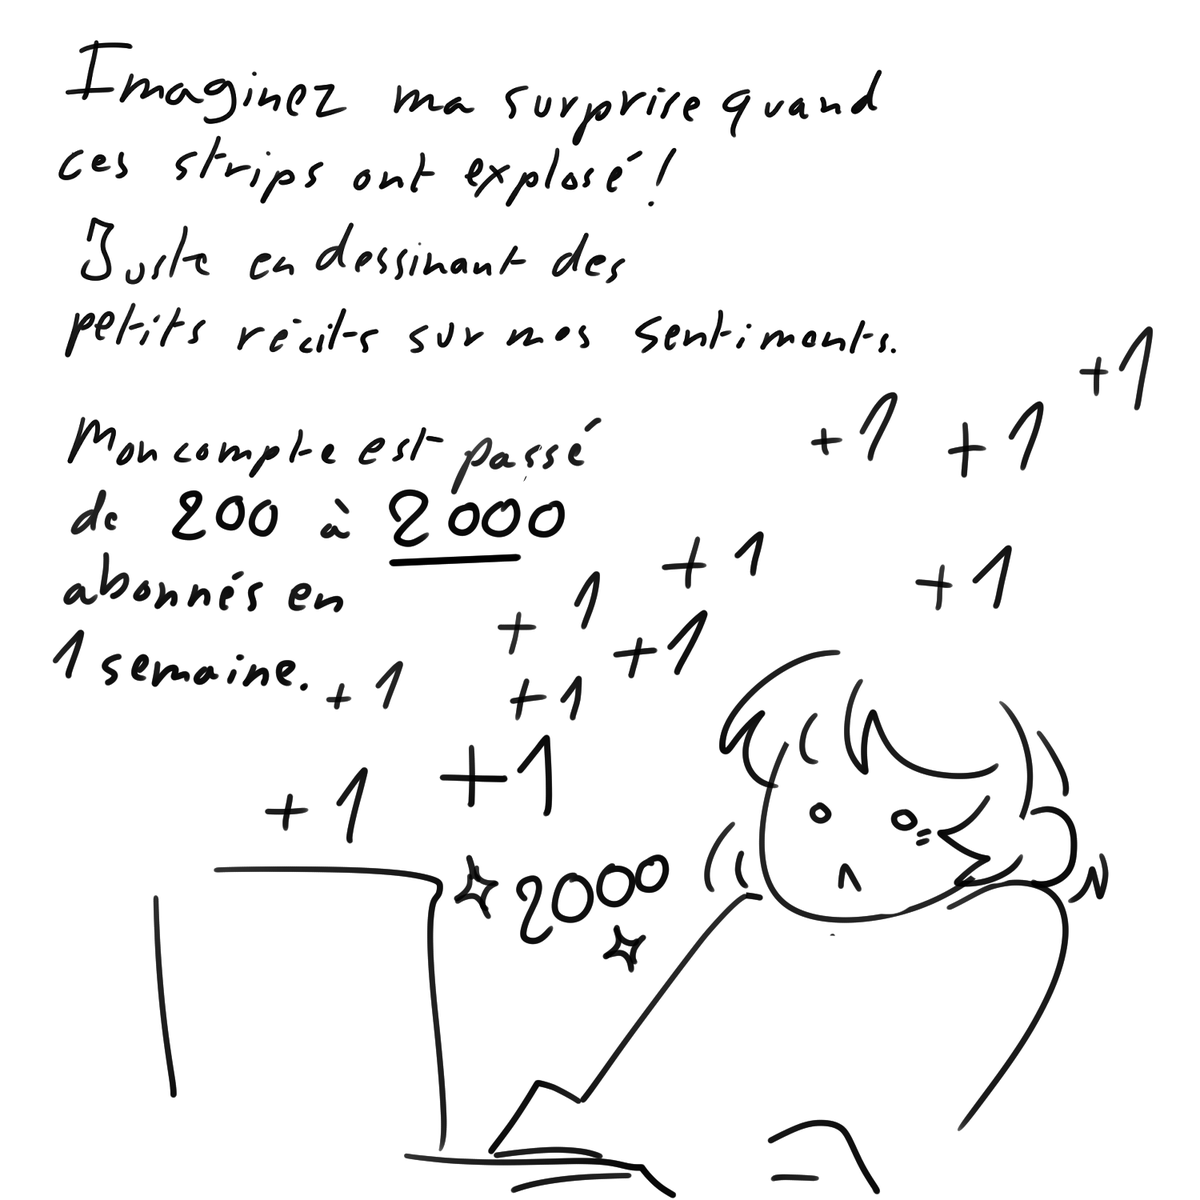 Imaginez ma surprise quand
ces strips ont explosé !
Juste en dessinant des
petits récits sur mos sentiments.
+1
+1
+1
Mon compte est passé
de 200 à 2000
abonnés en
1 semaine.
+1
+1
+1
+1
+1
+1
+1
+1
2000